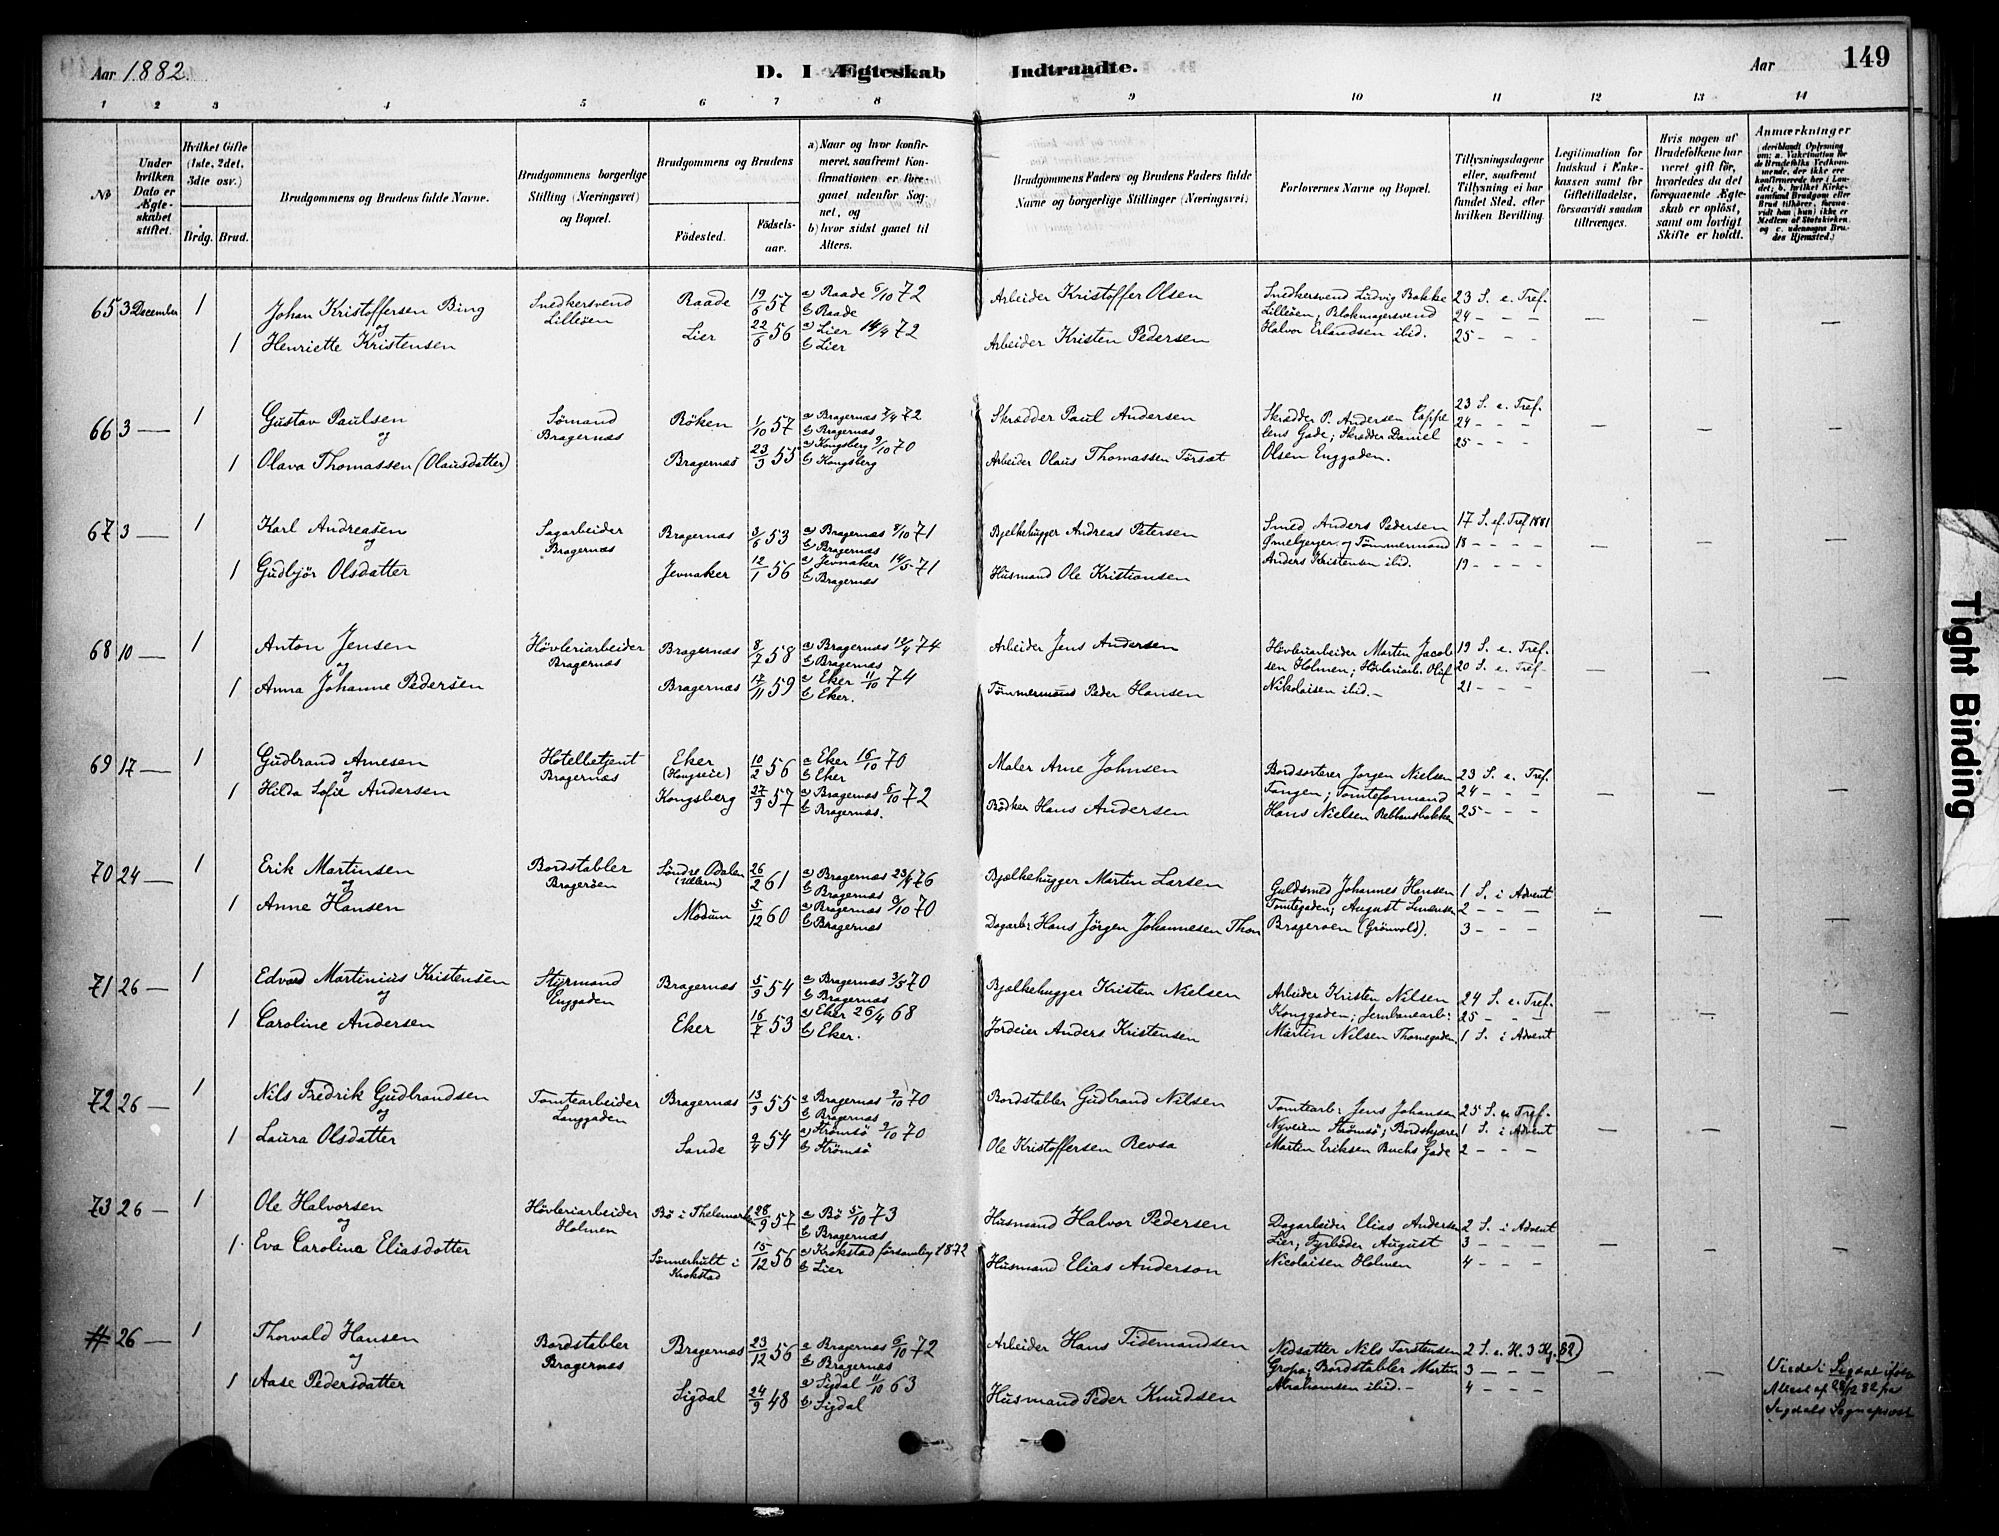 Aar 1882. D. I Ægteskab Indtraadte. Aar 149
1 2 3 4 5 6 7 8 9 10 11 12 13 14
No
Under hvilken Dato er Ægteskabet stiftet.
Hvilket Gifte (1ste, 2det, 3die osv.)
Brdg. Brud.
Brudgommens og Brudens fulde Navne.
Brudgommens borgerlige Stilling (Næringsvei) og Bopæl.
Brudgommens og Brudens
Fødested. Fødsels-aar.
a) Naar og hvor konfirmeret, saafremt Konfirmationen er foregaaet udenfor Sognet, og
b) hvor sidst gaaet til Alters.
Brudgommens Faders og Brudens Faders fulde Navne og borgerlige Stillinger (Næringsvei)
Forlovernes Navne og Bopæl.
Tillysningsdagene eller, saafremt Tillysning ei har fundet Sted, efter hvilken Bevilling.
Legitimation for Indskud i Enkekassen samt for Giftetilladelse, forsaavidt saadan tiltrænges.
Hvis nogen af Brudefolkene har været gift før, hvorledes da det foregaaende Ægteskab er opløst, samt om lovligt Skifte er holdt.
Anmærkninger (deriblandt Oplysning om: a. Vakcination for de Brudefolks Vedkommende, der ikke ere konfirmerede her i Landet; b. hvilket Kirkesamfund Brudgom eller Brud tilhører, forsaavidt han (hun) ikke er Medlem af Statskirken og c. udensogns Brudes Hjemsted.)
65 3 December 1 Johan Kristoffersen Bing Snedkersvend Lilleöen Raade 19/6 57 a) Raade 6/10 72 b) Raade Arbeider Kristoffer Olsen Snedkersvend Ludvig Bakke 23 S. e. Tref.
og Lilleöen; Blokmagersvend 24 - - -
1 Henriette Kristensen Lier 22/6 56 a) Lier 14/4 72 b) Lier Arbeider Kristen Pedersen Halvor Erlandsen ibid. 25 - - -
66 3 — 1 Gustav Paulsen Sømand Bragernæs Röken 1/10 57 a) Bragernæs 7/4 72 b) Bragernæs Skrædder Paul Andersen Skrædder P. Andersen Cappe 23 S. e. Tref.
og lens Gade; Skrædder Daniel 24 - - -
1 Olava Thomassen (Olausdatter) Bragernæs 23/3 55 a) Kongsberg 9/10 70 b) Kongsberg Arbeider Olaus Thomassen Torsæt Olsen Enggaden. 25 - - -
67 3 — 1 Karl Andreasen Sagarbeider Bragernæs Bragernæs 3/6 53 a) Bragernæs 8/10 71 b) Bragernæs Bjelkehugger Andreas Petersen Smed Anders Pedersen 17 S. ef. Tref 1881
og og Tømmermand 18 - - -
1 Gudbjør Olsdatter Jevnaker 12/1 56 a) Jevnaker 14/5 71 b) Bragernæs Husmand Ole Kristiansen Anders Kristensen ibid. 19 - - -
68 10 — 1 Anton Jensen Hövleriarbeider Bragernæs Bragernæs 8/7 58 a) Bragernæs 12/4 74 b) Bragernæs Arbeider Jens Andersen Hövleriarbeider Martin Jacob 19 S. e. Tref.
og sen Holmen; Hövleriarb. Olif 20 S. e. Tref-
1 Anna Johanne Pedersen Bragernæs 17/11 59 a) Eker 11/10 74 b) Eker. Tømmermand Peder Hansen Nikolaisen ibid.- 21 - - -
69 17 — 1 Gudbrand Arnesen Hotelbetjent Bragernæs Eker 10/2 56 a Eker 16/10 70 b) Eker Maler Arne Johnsen Bordsorterer Jørgen Nielsen 23 S. e. Tref.
og Tangen; Tomteformand 24 - - -
1 Hilda Sofie Andersen Kongsberg 27/9 57 a) Bragernæs 6/10 72 b) Bragernæs. Bødker Hans Andersen Hans Nielsen 25 - - -
70 24 — 1 Erik Martinsen Bordstabler Bragerøen Søndre Odalen 26/2 61 a) Bragernæs 23/4 76 b) Bragernæs Bjælkehugger Martin Larsen Guldsmed Johannes Hansen 1 S. i Advent
og Tomtegaden; August 2 - - -
1 Anne Hansen Modum 5/12 60 a) Bragernæs 9/10 70 b) Bragernæs Dagarb: Hans Jörgen Johannesen Thon Bragerøen (Grönvold). 3 - - -
71 26 — 1 Edvard Martinius Kristensen Styrmand Enggaden Bragernæs 5/9 54 a) Bragernæs 3/5 70 b) Bragernæs Bjælkehugger Kristen Nielsen Arbeider Kristen Nilsen 24 S. e. Tref.
og Konggaden; Jernbanearb: 25 - - -
1 Caroline Andersen Eker 16/7 53 a) Eker 26/4 68 b) Eker. Jordeier Anders Kristensen Martin Nilsen Thornegaden 1 S. i Advent
72 26 — 1 Nils Fredrik Gudbrandsen Tomtearbeider Langgaden Bragernæs 13/9 55 a) Bragernæs 2/10 70 b) Bragernæs Bordstabler Gudbrand Nilsen Tomtearb: Jens Johansen 25 S. e. Tref.
og Nyveien Strømsø; Bordskjærer 1 S. i Advent
1 Laura Olsdatter Sande 2/4 54 a) Strömsö 2/10 70 b) Strömsö Ole Kristoffersen Revsa Martin Eriksen Buchs Gade 2 - - -
73 26 — 1 Ole Halvorsen Hövleriarbeider Holmen Bö i Thelemarken 28/9 57 a) Bö 5/10 73 b) Bragernæs Husmand Halvor Pedersen Dagarbeider Elias Andersen 2 S. i Advent
og Lier; Fyrbøder August 3 - - -
1. Eva Caroline Eliasdatter Sönnerhult i Krokstad 15/12 56 a) Krokstad forsamling 1872 b) Lier Husmand Elias Anderson Nicolaisen Holmen 4 - - -
# 26 — 1 Thorvald Hansen Bordstabler Bragernæs Bragernæs 23/12 56 a) Bragernæs 6/10 72 b) Bragernæs Arbeider Hans Tidemandsen Nedsætter Nils Torstensen 2 S. e. H. 3 Kg. 82)
og Gropa; Bordstabler Martin 3 - - -
1 Aase Pedersdatter Sigdal 24/9 48 a) Sigdal 11/10 63 b) Sigdal Husmand Peder Knudsen Abrahamsen ibid.- 4 - - -
Viede i Sigdal ifölge Attest af 28/12 82 fra Sigdals Sognepræst
Tight Binding